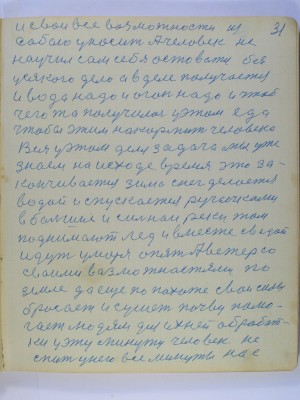 31
и свои все возможности из
собою уносит А человек не
научил сам себя оставатся без
усякого дела а в деле получается
и вода надо и огон надо и того
чего та получилося у этом еда
чтобы этим накормит человека
Вся у этом делу задача мы уже
знаем на исходе время это за-
канчивается зима снег делается
водой и спускается ручайками
в большие и сильнаи реки там
поднимают лед и вместе с водой
идут у моря опят А ветер со
своими возможностями по
земле да еще по похоже свои силы
бросает и сушет почву помо-
гает людям для ихней обработ-
ки у эту минуту человек не
спит у него все минуты на с